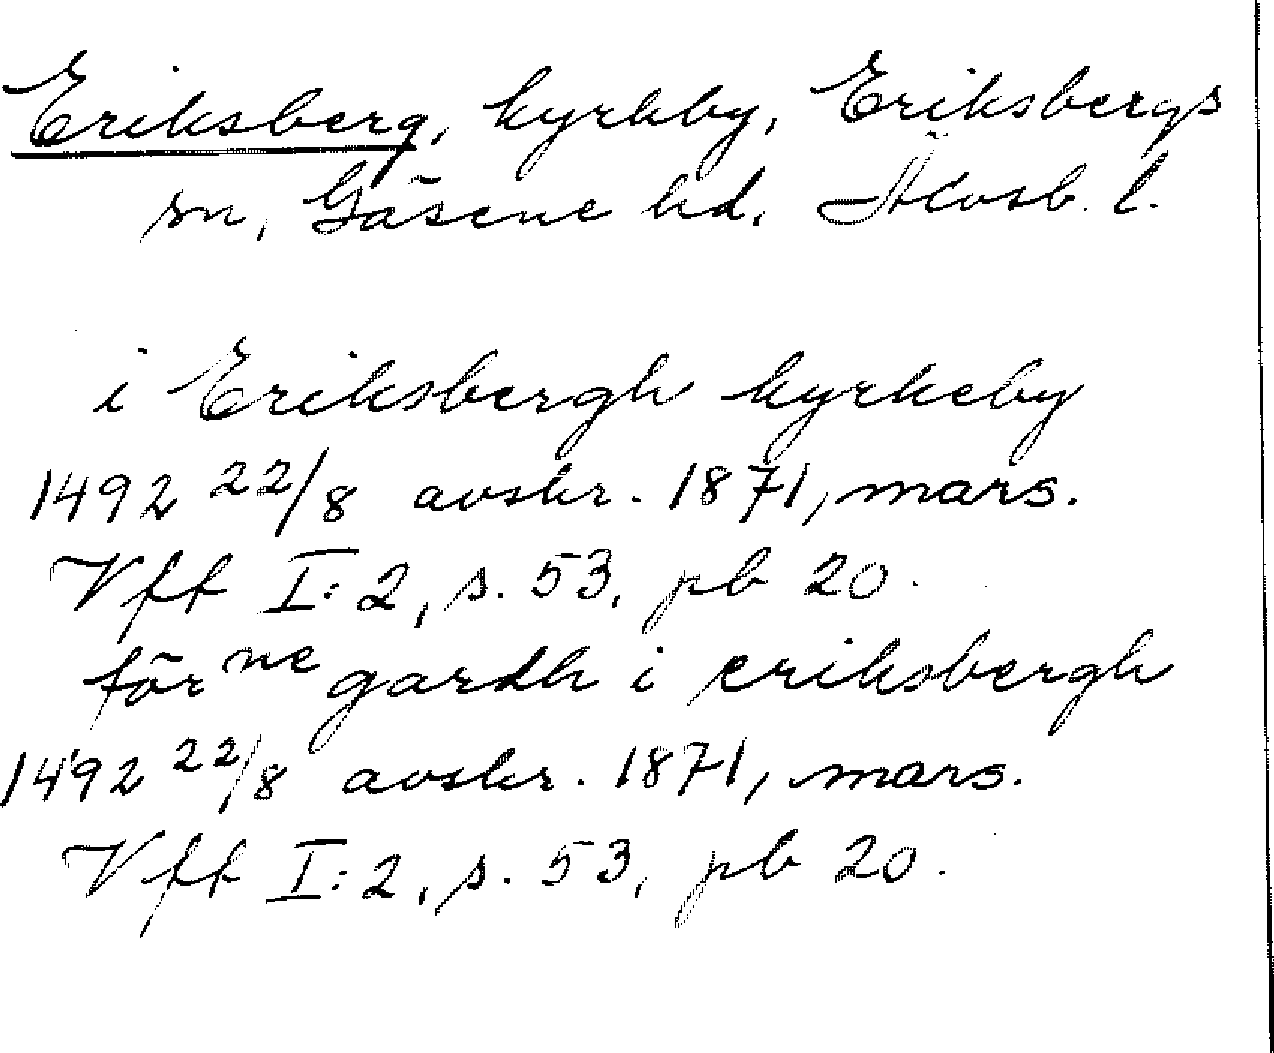 Eriksberg, kyrkby, Eriksbergs
sn, Gäsene hd. Älvsb. l.
i Eriksbergh kyrkeby
1492 22/8 avskr. 1871, mars.
Vff I:2, s. 53, pb 20.
förne gardh i eriksbergh
1492 22/8 avskr. 1871, mars.
Vff I:2, s. 53, pb 20.